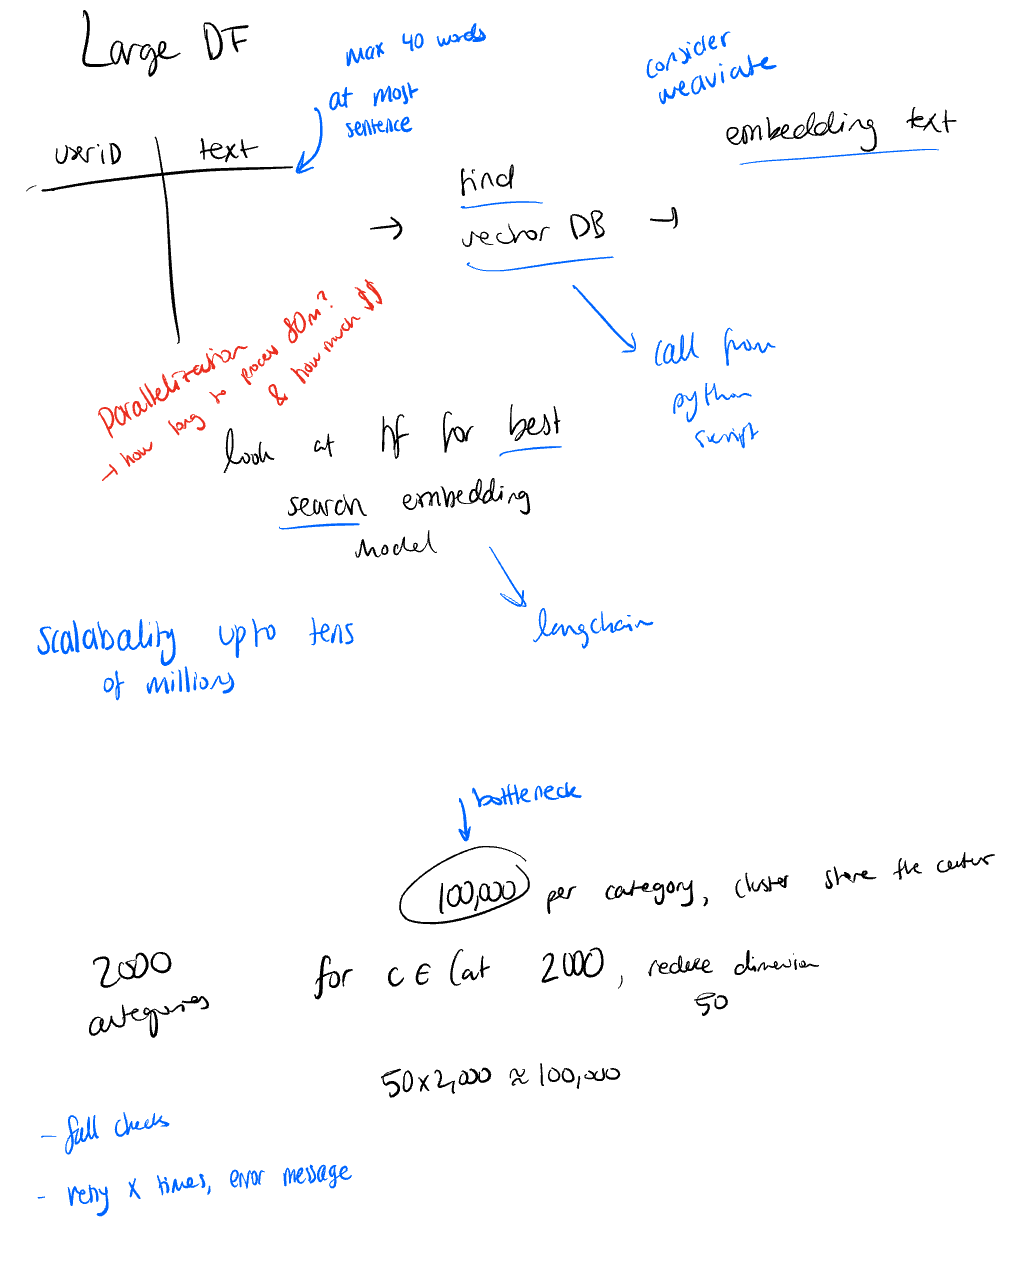 Large DF
max 40 words
at most
sentence
consider
weaviate
embedding text
userID text
find
vector DB
call from
python
script
Parallelization
→ how long to process 80m?
& how much $$
look at hf for best
search embedding
model
langchain
scalabality up to tens
of millions
bottleneck
100,000 per category, cluster store the center
2000
categories
for C ∈ Cat 2000, reduce dimension
50
50 x 2,000 ≈ 100,000
- fall checks
- retry x times, error message